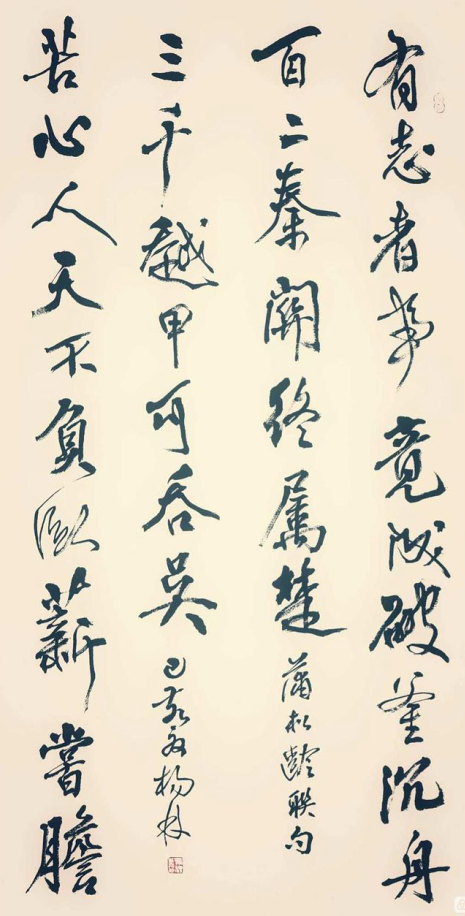 有志者事竟成破釜沉舟
百二秦關終属楚
蒲松齡聯句
苦心人天不負卧薪嘗膽
三千越甲可吞吳
己亥 楊林